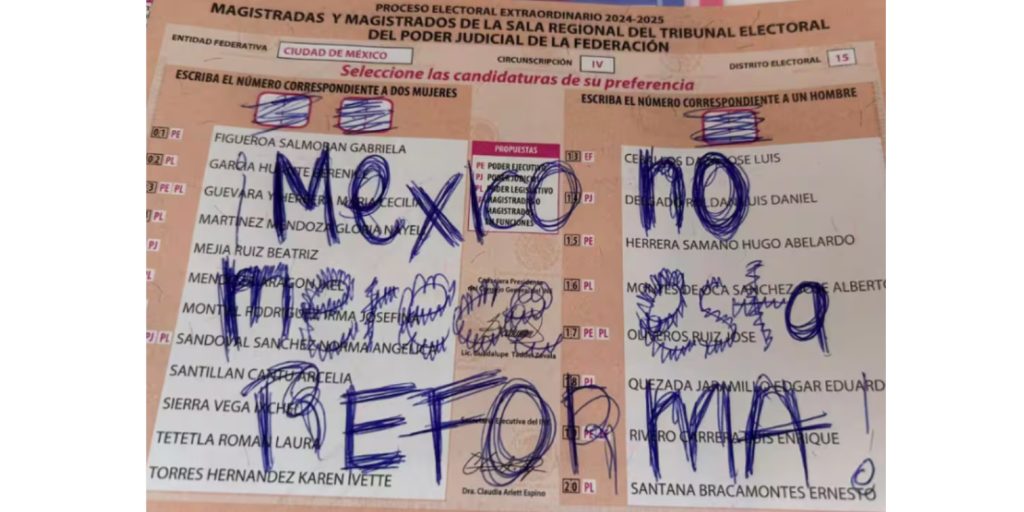 PROCESO ELECTORAL EXTRAORDINARIO 2024-2025
MAGISTRADAS Y MAGISTRADOS DE LA SALA REGIONAL DEL TRIBUNAL ELECTORAL
DEL PODER JUDICIAL DE LA FEDERACIÓN
ENTIDAD FEDERATIVA CIUDAD DE MÉXICO CIRCUNSCRIPCIÓN IV DISTRITO ELECTORAL 15
Seleccione las candidaturas de su preferencia
ESCRIBA EL NÚMERO CORRESPONDIENTE A DOS MUJERES
01 PE FIGUEROA SALMORAN GABRIELA
02 PL GARCIA HUANTE BERENICE
3 PE PL GUEVARA Y HERRERA MARIA CECILIA
PL MARTINEZ MENDOZA GLORIA NAYELI
PJ MEJIA RUIZ BEATRIZ
MENDOZA ARAGON IXEL
MONTIEL RODRIGUEZ IRMA JOSEFINA
PJ PL SANDOVAL SANCHEZ NORMA ANGELICA
SANTILLAN CANTU ARCELIA
SIERRA VEGA IXCHEL
TETETLA ROMAN LAURA
TORRES HERNANDEZ KAREN IVETTE
PROPUESTAS
PE PODER EJECUTIVO
PJ PODER JUDICIAL
PL PODER LEGISLATIVO
MAGISTRADAS O
MAGISTRADOS
EN FUNCIONES
Consejera Presidenta
del Consejo General del INE
Lic. Guadalupe Taddei Zavala
Secretaria Ejecutiva del INE
Dra. Claudia Arlett Espino
ESCRIBA EL NÚMERO CORRESPONDIENTE A UN HOMBRE
13 EF CEBALLOS DAZA JOSE LUIS
14 PJ DELGADO ROLDAN LUIS DANIEL
15 PE HERRERA SAMAÑO HUGO ABELARDO
16 PL MONTES DE OCA SANCHEZ JOSE ALBERTO
17 PE PL OLIVEROS RUIZ JOSE
18 PL QUEZADA JARAMILLO EDGAR EDUARD
19 PE RIVERO CARRERA LUIS ENRIQUE
20 PL SANTANA BRACAMONTES ERNESTO
Mexico no
merece esta
REFORMA!